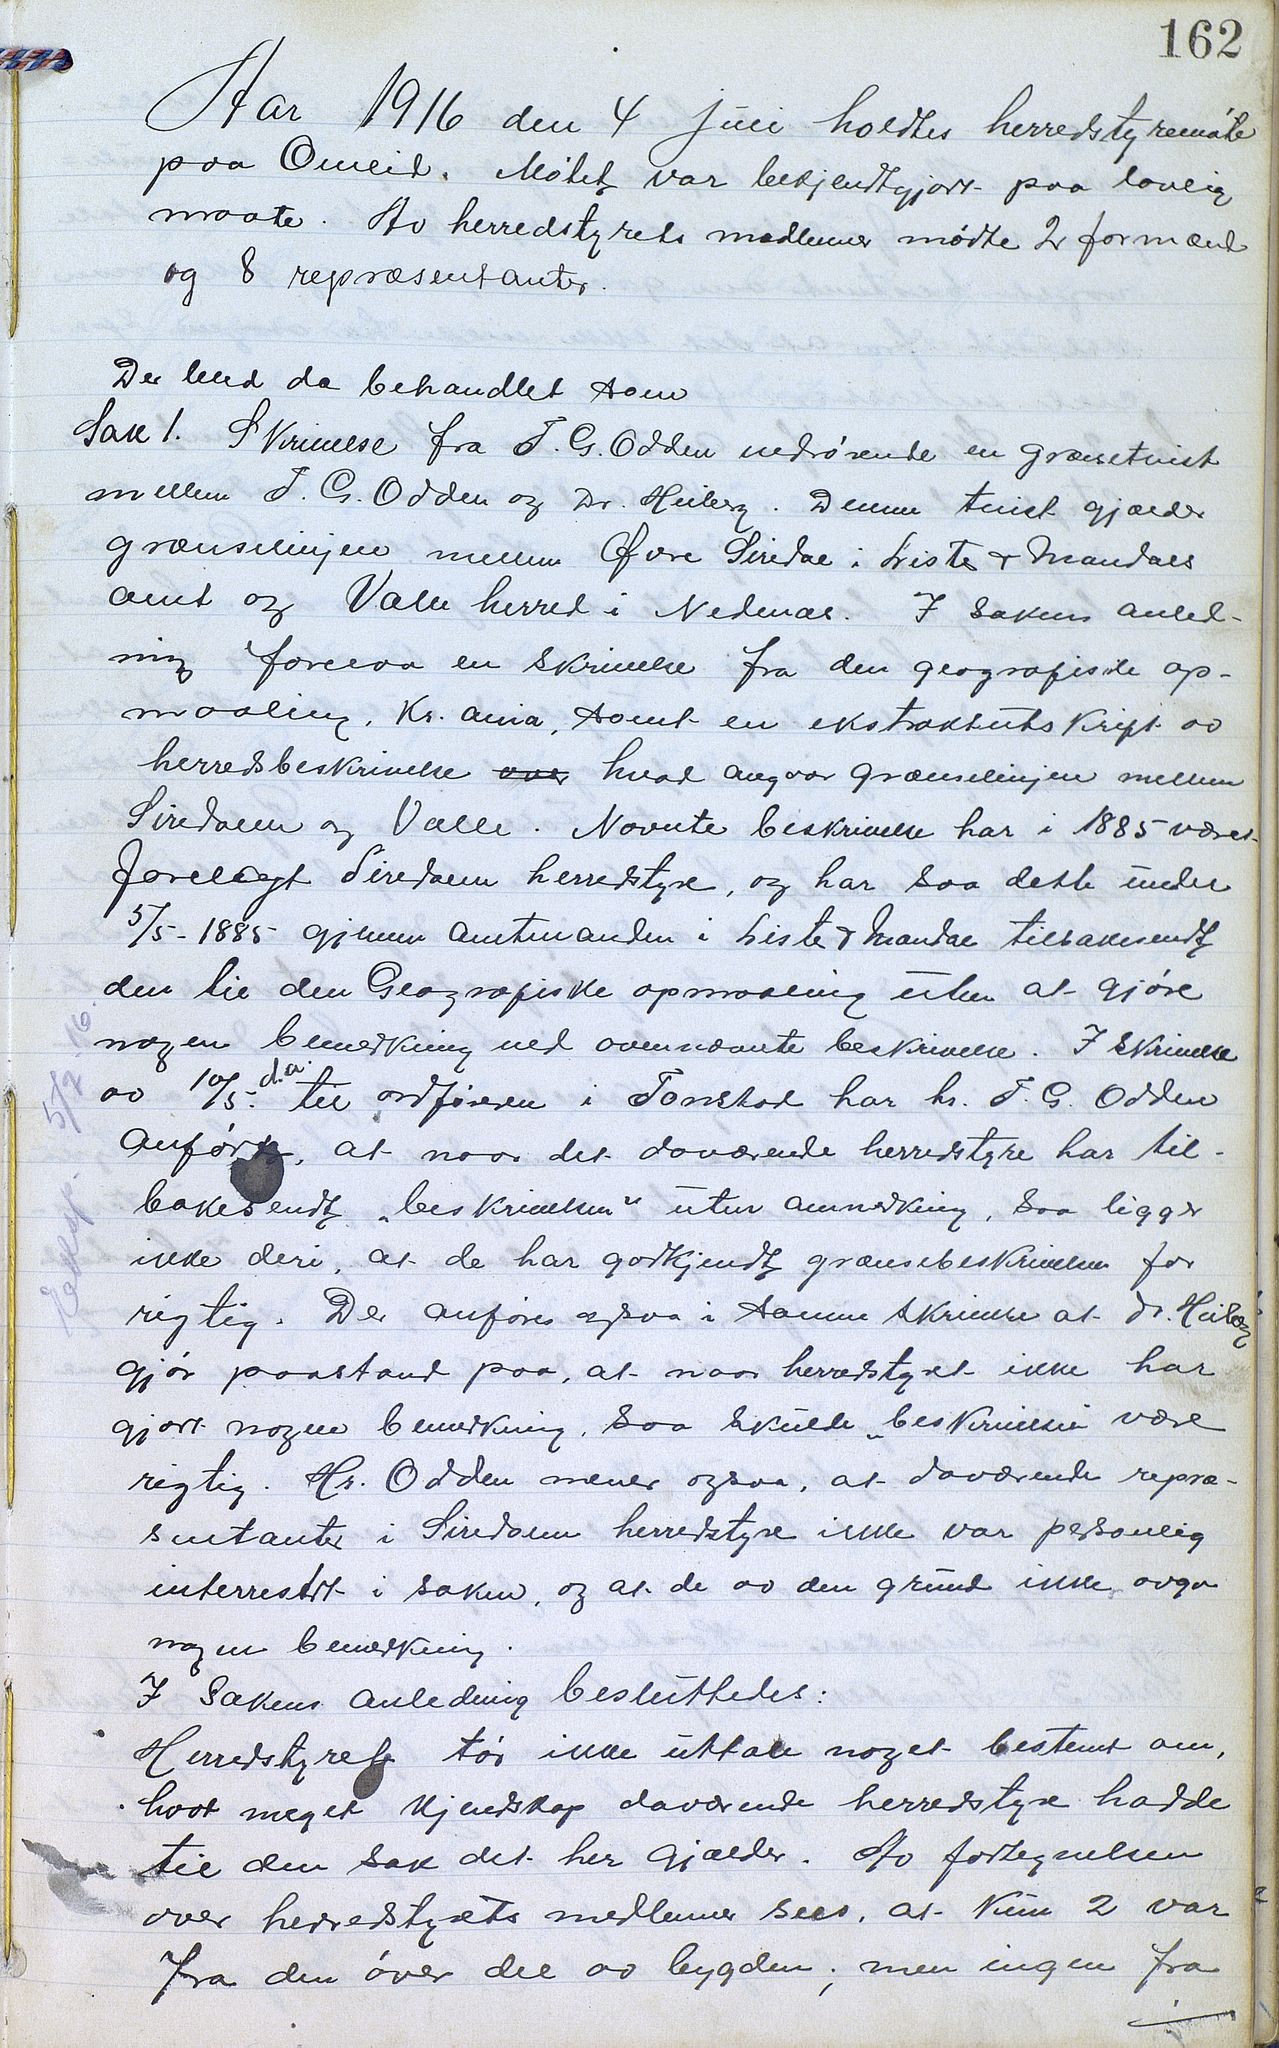 162
Aar 1916 den 4 juni holdtes herredstyremøte
paa Omlid. Møtet var bekjendtgjort paa lovlig
maate. Av herredstyrets medlemer mødte 2 formænd
og 8 repræsentanter.
Der blev da behandlet som
Sak 1. Skrivelse fra T. G. Odden vedrørende en grænsetvist
mellem T. G. Odden og Dr. Heiberg. Denne tvist gjælder
grænselinjen mellem Øvre Siredal i Lister & Mandals
amt og Valle herred i Nedenæs. I sakens anled-
ning forelaa en skrivelse fra den geografiske op-
maaling, Kr.ania, samt en ekstraktutskript av
herredsbeskrivelse over hvad angaar grænselinjen mellem
Siredalen og Valle. Nævnte beskrivelse har i 1885 været
forelagt Siredalen herredstyre, og har saa dette under
5/5-1885 gjennem amtmanden i Lister & Mandal tilbakesendt
den til den Geografiske opmaaling uten at gjøre
nogen bemerkning ved ovennævnte beskrivelse. I skrivelse
av 10/5. d.a. til ordføreren i Tonstad har hr. T. G. Odden
anført, at naar det daværende herredstyre har til-
bakesendt „beskrivelsen" uten anmerkning, saa ligger
ikke deri, at de har godkjendt grænsebeskrivelsen for
rigtig. Der anføres ogsaa i samme skrivelse at dr. Heiberg
gjør paastand paa, at naar herredstyret ikke har
gjort nogen bemerkning, saa skulde „beskrivelsen være
rigtig. Hr. Odden mener ogsaa, at daværende repræ-
sentanter i Siredalen herredstyre ikke var personlig
interresert i saken, og at de av den grund ikke avga
nogen bemerkning.
I Sakens anledning besluttedes:
Herredstyret tør ikke uttale noget bestemt om,
hvor meget kjendskap daværende herredstyre hadde
til den sak det her gjælder. Av fortegnelsen
over herredstyrets medlemer sees, at kun 2 var
fra den øver del av bygden, men ingen fra
Eksp. 5/7.16.